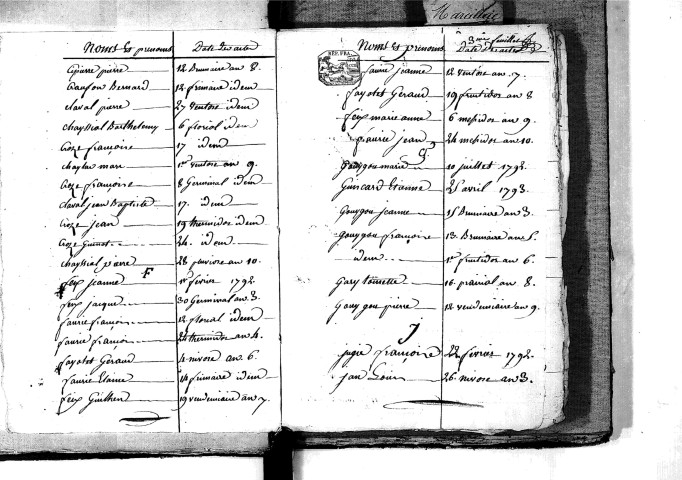 Noms et prenoms Date des actes
pierre 12 Brumaire an 8.
Bernard 12 frimaire idem
claval pierre 27 ventose idem
chayssial Barthelemy 6 floréal idem
Croze françoise 17 idem
marc 1er ventose an 9.
Croze françoise 8 Germinal idem
claval jean Baptiste 17. idem
Croze jean 19 thermidor idem
Croze 24. idem
chayssial pierre 28 pluviose an 10.
F
feix jeanne 1er fevrier 1792
feix jacque 30 Germinal an 3.
faurie françois 12 floréal idem
faurie françois 24 thermidor an 4.
fayolet Geraud 4 nivose an 6.
faurie 14 frimaire idem
feix Guilhen 19 vendemiaire an 7.
Marcillac
3me feuillet
Noms et prenoms Date des actes
REP. FRA.
faurie jeanne 12 ventose an 7.
fayolet Geraud 19 fructidor an 8
feix marie anne 6 messidor an 9.
faurie jean 24 messidor an 10.
G
Gouygou marie 10 juillet 1792.
Guiscard Etienne 25 avril 1793.
Gouygou jeanne 15 Brumaire an 3.
Gouygou françoise 13 Brumaire an 5.
idem 1er fructidor an 6.
Gary toinette 16. prairial an 8.
Gouygou pierre 12 vendemiaire an 9.
J
juge françoise 22 fevrier 1792.
jan Louis 26 nivose an 3.